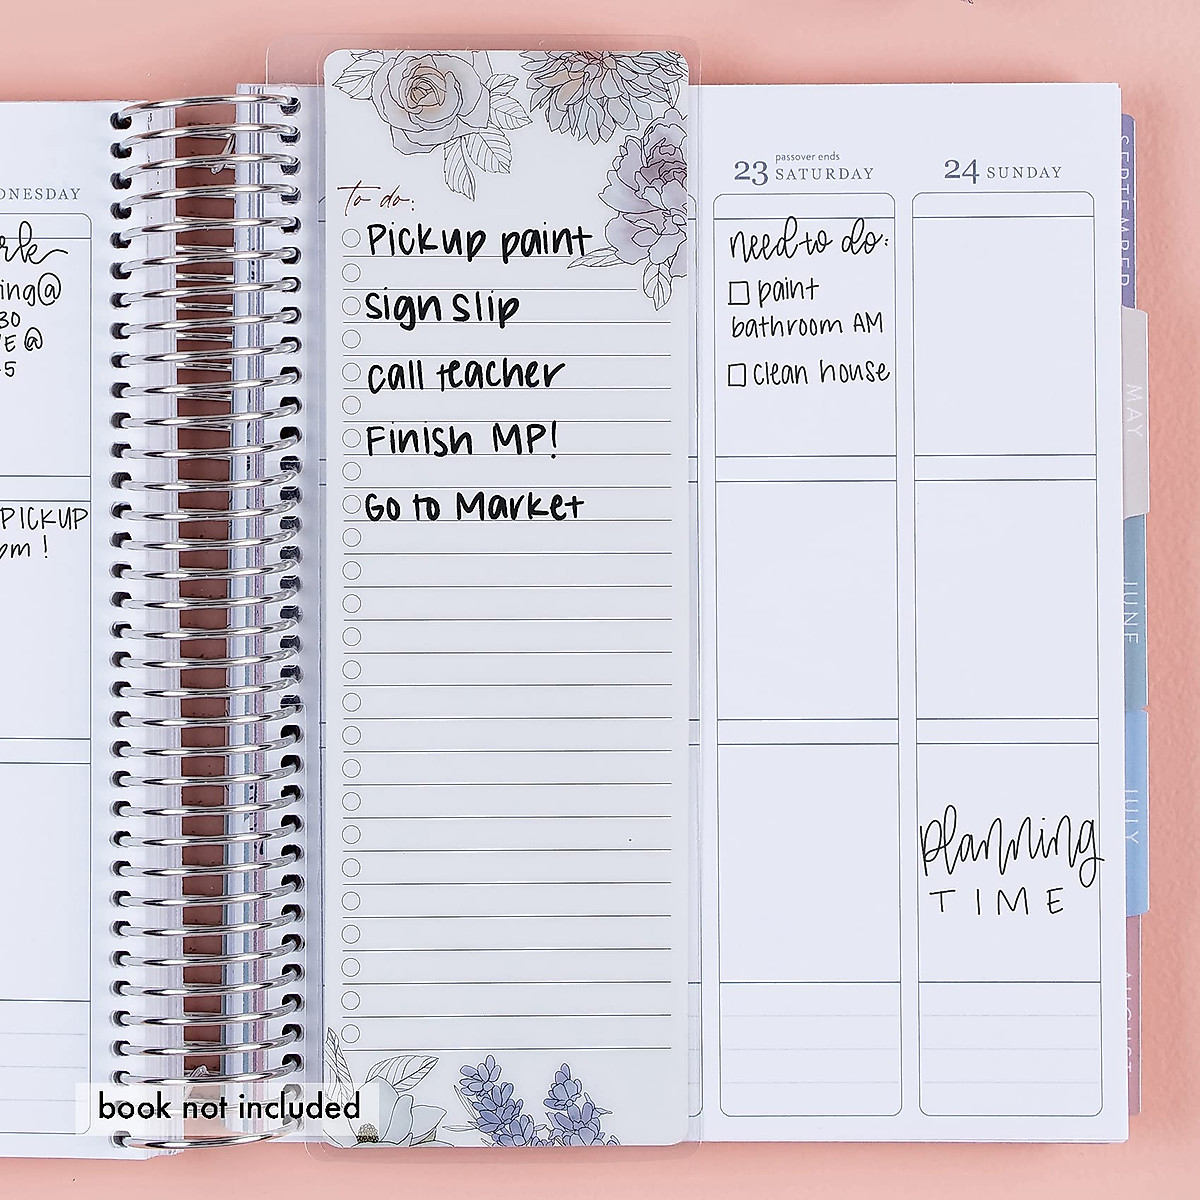 To do:
Pickup paint
sign slip
call teacher
Finish MP!
Go to Market
23 passover ends
SATURDAY
need to do:
paint
bathroom AM
clean house
24 SUNDAY
planning
TIME
PICKUP
SEPTEMBER
MAY
JUNE
JULY
AUGUST
book not included